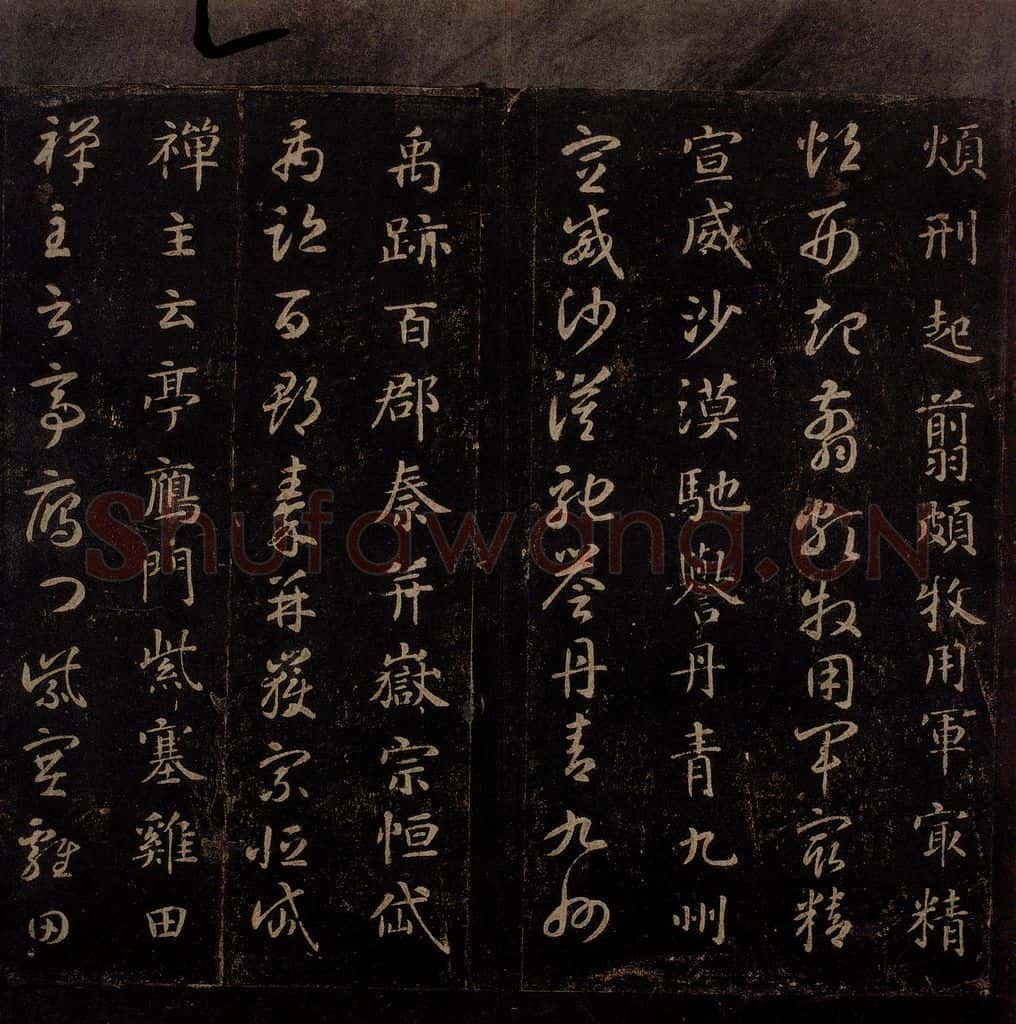 煩刑起翦頗牧用軍㝡精
煩刑起翦頗牧用軍㝡精
宣威沙漠馳譽丹青九州
宣威沙漠馳譽丹青九州
禹跡百郡秦并嶽宗恒岱
禹跡百郡秦并嶽宗恒岱
禪主云亭鴈門紫塞雞田
禪主云亭鴈門紫塞雞田
Shufawang.CN